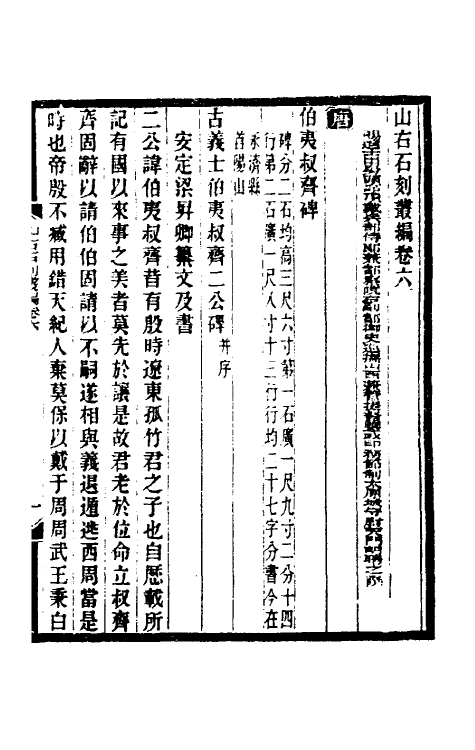 山右石刻叢編卷六
唐
伯夷叔齊碑
碑分二石均高三尺六寸第一石廣一尺九寸二分十四
行第二石廣一尺八寸十三行行均二十七字分書今在
永濟縣
首陽山
古義士伯夷叔齊二公碑并序
安定梁昇卿纂文及書
二公諱伯夷叔齊昔有殷時遼東孤竹君之子也自歷載所
記有國以來事之美者莫先於讓是故君老於位命立叔齊
齊固辭以請伯伯固請以不嗣遂相與義退遁逃西周當是
時也帝殷不臧用錯天紀人棄莫保以戴于周周武王秉白
山右石刻叢編卷六
一